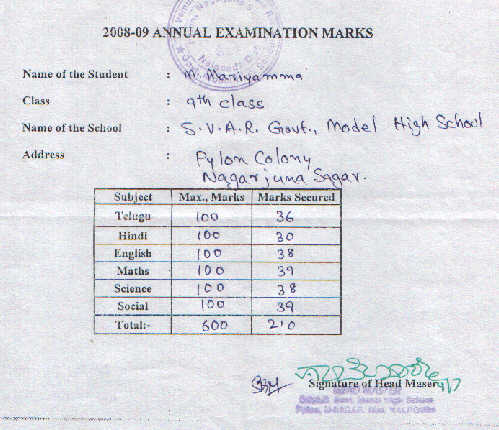 2008-09 ANNUAL EXAMINATION MARKS
Name of the Student : M. Mariyamma
Class : 9th class
Name of the School : S.V.A.R. Govt., Model High School
Address : Pylon Colony
Nagarjuna Sagar.
Subject Max., Marks Marks Secured
Telugu 100 36
Hindi 100 30
English 100 38
Maths 100 39
Science 100 38
Social 100 39
Total:- 600 210
Signature of Head Master